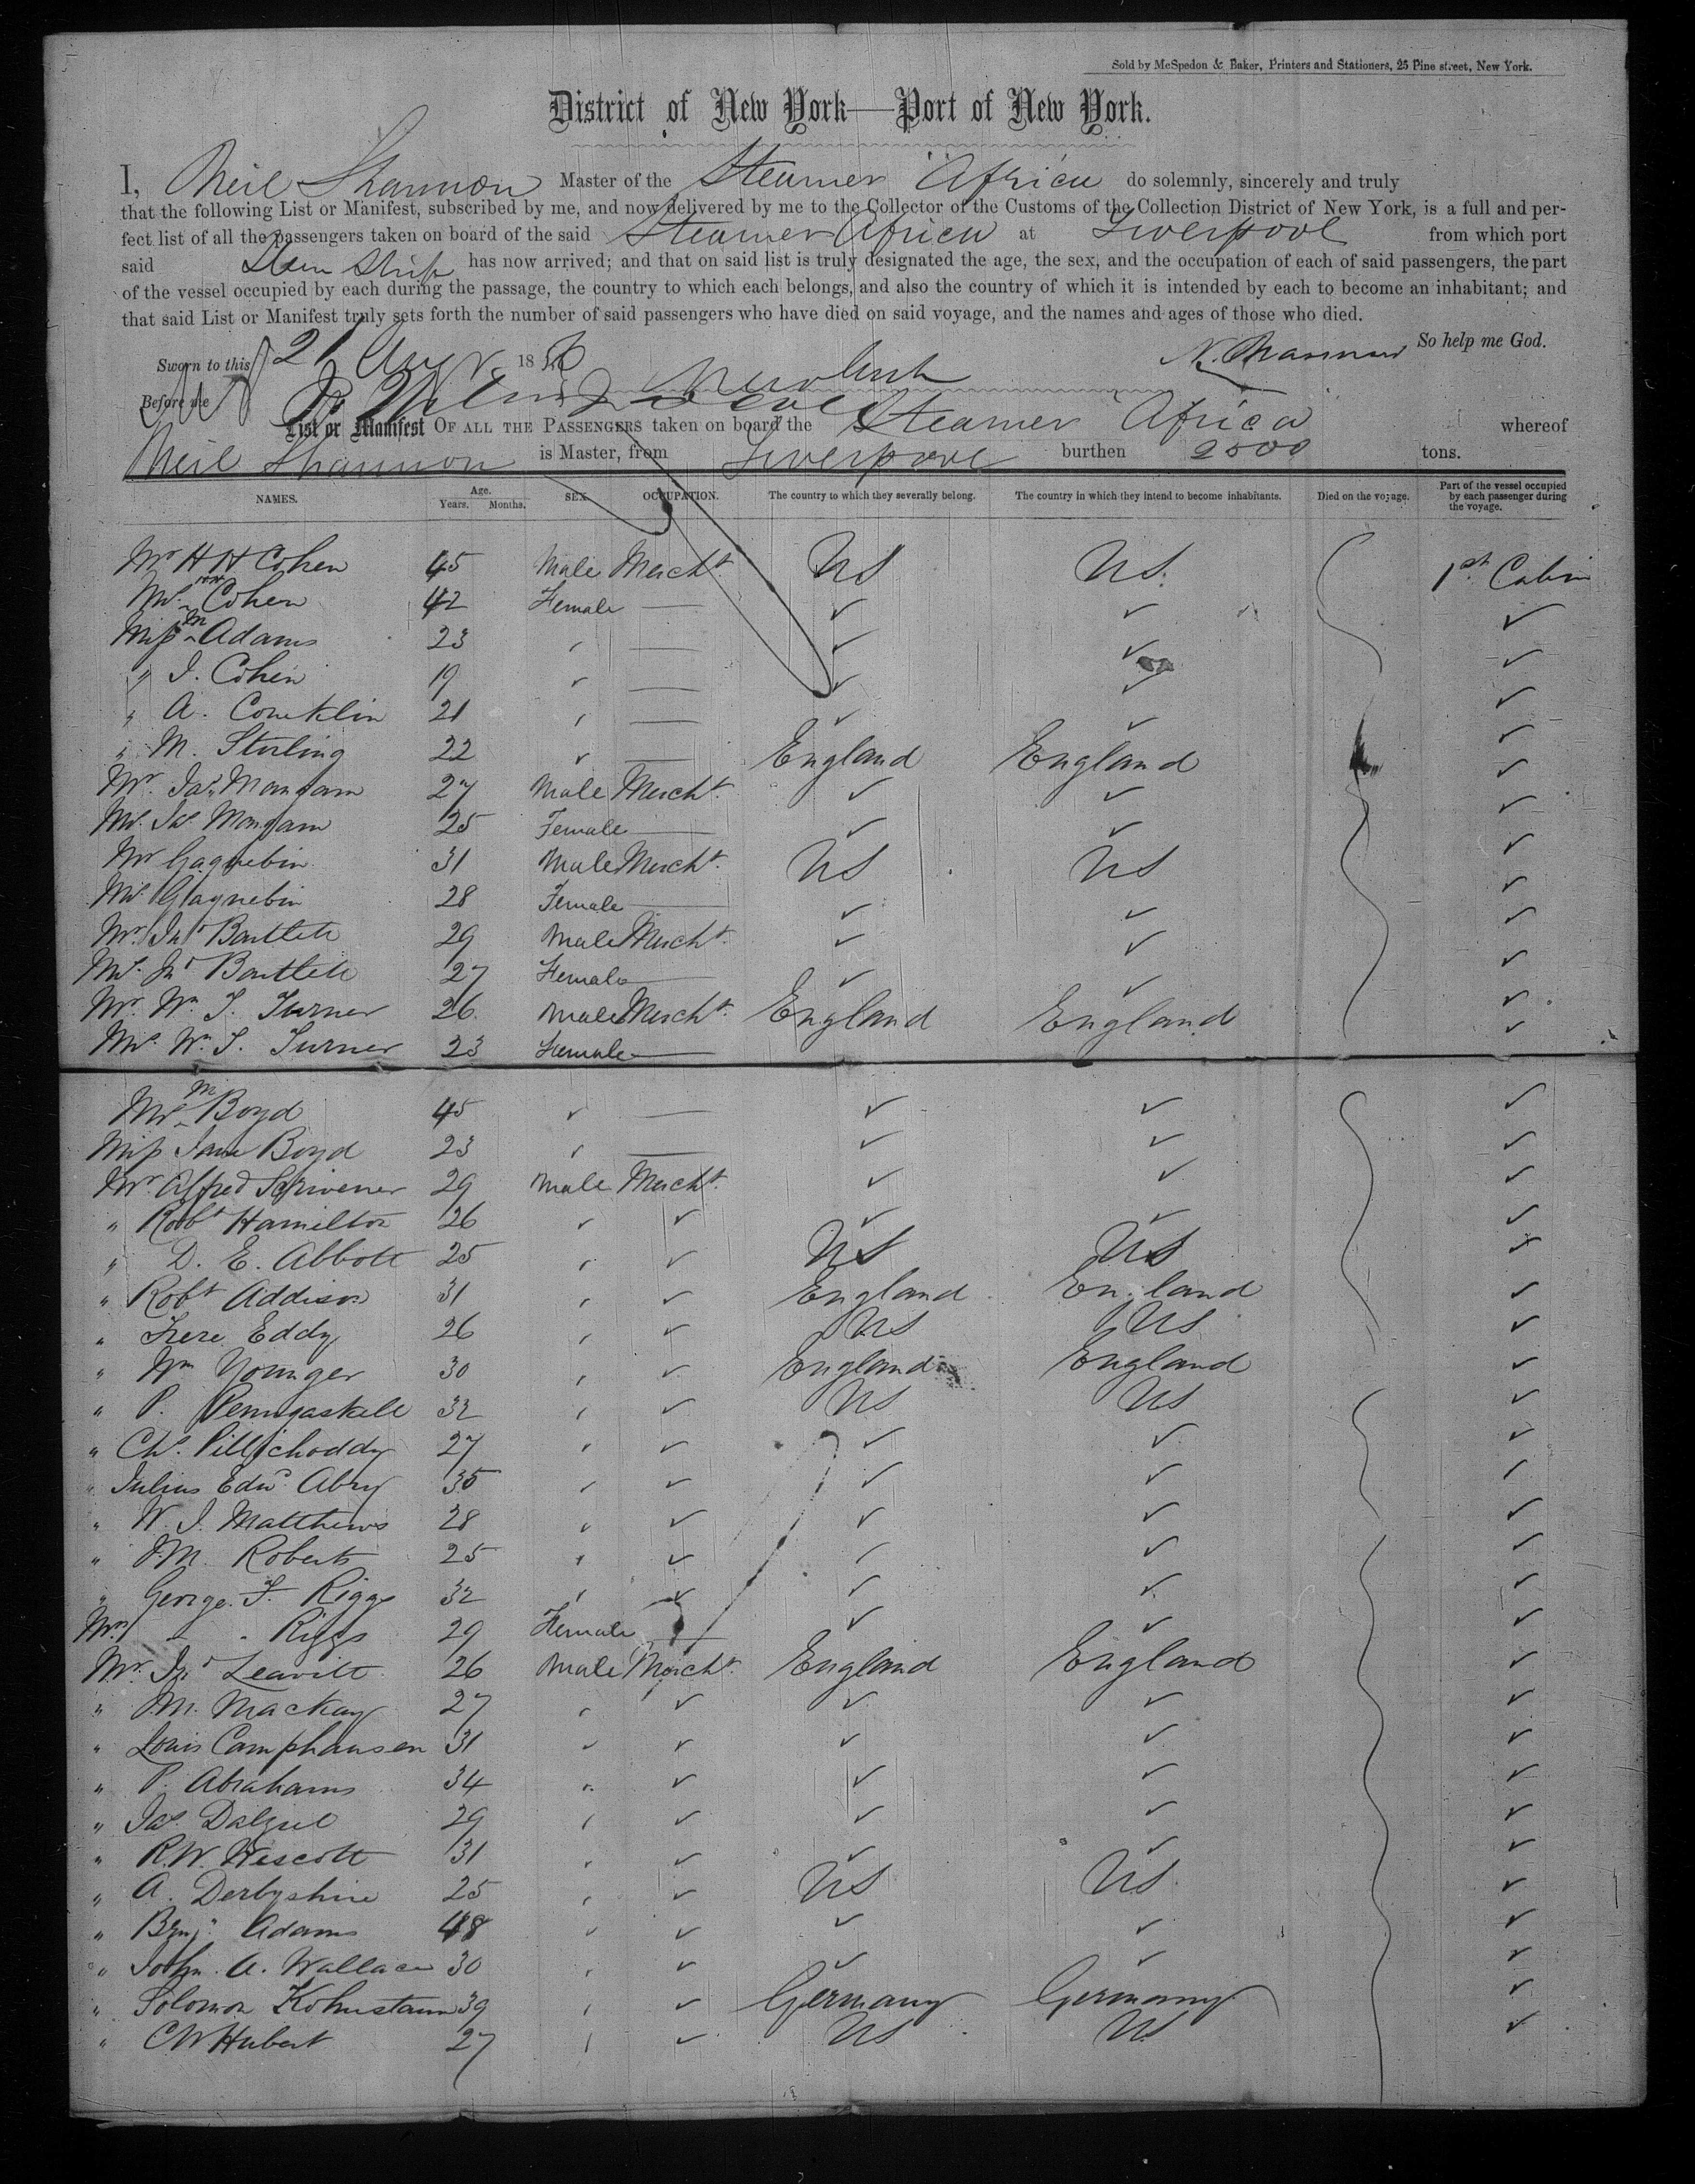 Sold by McSpedon & Baker, Printers and Stationers, 25 Pine street, New York.
District of New York—Port of New York.
I, Neil Shannon Master of the Steamer Africa do solemnly, sincerely and truly
that the following List or Manifest, subscribed by me, and now delivered by me to the Collector of the Customs of the Collection District of New York, is a full and per-
fect list of all the passengers taken on board of the said Steamer Africa at Liverpool from which port
said Steam Ship has now arrived; and that on said list is truly designated the age, the sex, and the occupation of each of said passengers, the part
of the vessel occupied by each during the passage, the country to which each belongs, and also the country of which it is intended by each to become an inhabitant; and
that said List or Manifest truly sets forth the number of said passengers who have died on said voyage, and the names and ages of those who died.
So help me God.
Sworn to this 21 1856 N. Shannon
Before me
List or Manifest OF ALL THE PASSENGERS taken on board the Steamer Africa whereof
Neil Shannon is Master, from Liverpool burthen 2500 tons.
NAMES. Age. Years. Months. SEX. OCCUPATION. The country to which they severally belong. The country in which they intend to become inhabitants. Died on the voyage. Part of the vessel occupied by each passenger during the voyage.
Mr H H Cohen 45 Male Mercht. US US. 1st. Cabin
Mrs HH Cohen 42 Female — ✓ ✓ ✓
Miss M Adams 23 ✓ — ✓ ✓ ✓
" I. Cohen 19 ✓ — ✓ ✓ ✓
" A. Conklin 21 ✓ — ✓ ✓ ✓
" M. Sterling 22 ✓ — England England ✓
Mr. Jas. Mangam 27 Male Mercht. ✓ ✓ ✓
Mrs. Jas. Mangam 25 Female — ✓ ✓ ✓
Mr Gagnebin 31 Male Mercht. US US ✓
Mrs. Gagnebin 28 Female — ✓ ✓ ✓
Mr. Jno Bartlett 29 Male Mercht. ✓ ✓ ✓
Mrs. Jno Bartlett 27 Female — ✓ ✓ ✓
Mr. Wm J. Turner 26 Male Mercht. England England ✓
Mrs. Wm J. Turner 23 Female — ✓
Mrs M Boyd 45 ✓ — ✓ ✓ ✓
Miss Jane Boyd 23 ✓ — ✓ ✓ ✓
Mr. Alfred Scrivener 29 Male Mercht. ✓ ✓ ✓
" Robt Hamilton 26 ✓ ✓ ✓ ✓ ✓
" D. E. Abbott 25 ✓ ✓ US US ✓
" Robt Addison 31 ✓ ✓ England England ✓
" Eddy 26 ✓ ✓ US US ✓
" Wm Younger 30 ✓ ✓ England England ✓
" P. Penngaskell 32 ✓ ✓ US US ✓
" Chs. Pillichoddy 27 ✓ ✓ ✓ ✓ ✓
" Julius Edwd Abry 35 ✓ ✓ ✓ ✓ ✓
" W. J. Matthews 28 ✓ ✓ ✓ ✓ ✓
" J.M. Roberts 25 ✓ ✓ ✓ ✓ ✓
" George. F. Riggs 32 ✓ ✓ ✓ ✓ ✓
Mrs " " Riggs 29 Female — ✓ ✓ ✓
Mr. Jno Leavitt 26 Male Mercht. England England ✓
" J.M. Mackay 27 ✓ ✓ ✓ ✓ ✓
" Louis Camphausen 31 ✓ ✓ ✓ ✓ ✓
" P. Abrahams 34 ✓ ✓ ✓ ✓ ✓
" Jas. Dalziel 29 ✓ ✓ ✓ ✓ ✓
" R.W. Wescott 31 ✓ ✓ ✓ ✓ ✓
" A. Derbyshire 25 ✓ ✓ US US ✓
" Benj. Adams 48 ✓ ✓ ✓ ✓ ✓
" John. A. Wallace 30 ✓ ✓ ✓ ✓ ✓
" Solomon Kohnstamm 39 ✓ ✓ Germany Germany ✓
" C W Hubert 27 ✓ ✓ US US ✓